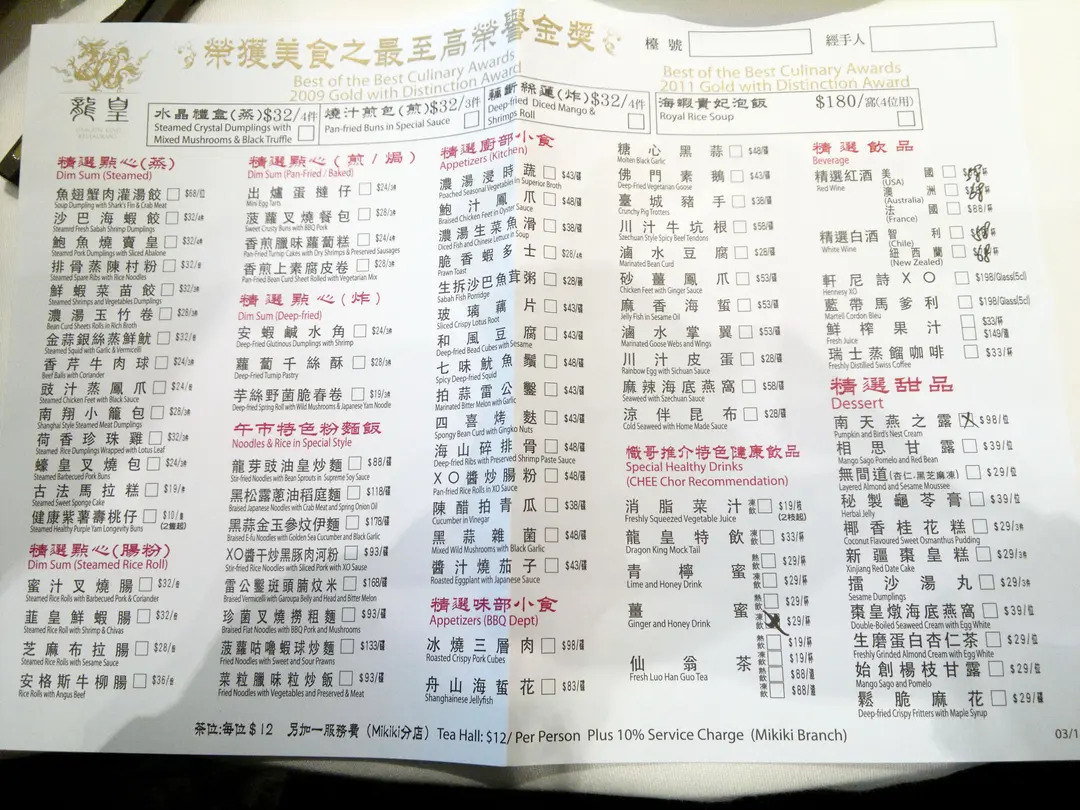 榮獲美食之最至高榮譽金獎
Best of the Best Culinary Awards
2009 Gold with Distinction Award
Best of the Best Culinary Awards
2011 Gold with Distinction Award
檯號
經手人
龍皇
水晶禮盒(蒸)$32/4件
Steamed Crystal Dumplings with
Mixed Mushrooms & Black Truffle
燒汁煎包(煎)$32/3件
Pan-fried Buns in Special Sauce
藕斷絲蓮(炸)$32/4件
Deep-fried Diced Mango &
Shrimps Roll
海蝦貴妃泡飯 $180/窩(4位用)
Royal Rice Soup
精選點心(蒸)
Dim Sum (Steamed)
魚翅蟹肉灌湯餃 $68/位
Soup Dumpling with Shark's Fin & Crab Meat
沙巴海蝦餃 $32/4件
Steamed Fresh Sabah Shrimp Dumplings
鮑魚燒賣皇 $32/4件
Steamed Pork Dumplings with Sliced Abalone
排骨蒸陳村粉 $32/客
Steamed Spare Ribs with Rice Noodles
鮮蝦菜苗餃 $32/客
Steamed Shrimps and Vegetables Dumplings
濃湯玉竹卷 $28/3件
Bean Curd Sheets Rolls in Rich Broth
金蒜銀絲蒸鮮魷 $32/客
Steamed Squid with Garlic & Vermicelli
香芹牛肉球 $24/3件
Beef Balls with Coriander
豉汁蒸鳳爪 $24/客
Steamed Chicken Feet with Black Sauce
南翔小籠包 $28/3件
Shanghai Style Steamed Meat Dumplings
荷香珍珠雞 $32/3件
Steamed Rice Dumplings Wrapped with Lotus Leaf
蠔皇叉燒包 $24/3件
Steamed Barbecued Pork Buns
古法馬拉糕 $19/件
Steamed Sweet Sponge Cake
健康紫薯壽桃仔 $10/隻
(2隻起)
Steamed Healthy Purple Yam Longevity Buns
精選點心(腸粉)
Dim Sum (Steamed Rice Roll)
蜜汁叉燒腸 $32/客
Steamed Rice Rolls with Barbecued Pork & Coriander
韮皇鮮蝦腸 $32/客
Steamed Rice Roll with Shrimp & Chivas
芝麻布拉腸 $28/客
Steamed Rice Rolls with Sesame Sauce
安格斯牛柳腸 $36/客
Rice Rolls with Angus Beef
精選點心(煎/焗)
Dim Sum (Pan-Fried / Baked)
出爐蛋撻仔 $24/3件
Mini Egg Tarts
菠蘿叉燒餐包 $28/3件
Sweet Crusty Buns with BBQ Pork
香煎臘味蘿蔔糕 $24/3件
Pan-Fried Turnip Cakes with Dry Shrimps & Preserved Sausages
香煎上素腐皮卷 $28/3件
Pan-Fried Bean Curd Sheet Rolled with Vegetarian Mix
精選點心(炸)
Dim Sum (Deep-fried)
安蝦鹹水角 $24/3件
Deep-Fried Glutinous Dumplings with Shrimp
蘿蔔千絲酥 $28/3件
Deep-fried Turnip Pastry
芋絲野菌脆春卷 $19/3件
Deep-fried Spring Roll with Wild Mushrooms & Japanese Yam Noodle
午市特色粉麵飯
Noodles & Rice in Special Style
龍芽豉油皇炒麵 $88/碟
Stir-fried Noodles with Bean Sprouts in Supreme Soy Sauce
黑松露蔥油稻庭麵 $118/碟
Braised Japanese Noodles with Crab Meat and Spring Onion Oil
黑蒜金玉參炆伊麵 $178/碟
Braised E-fu Noodles with Golden Sea Cucumber and Black Garlic
XO醬干炒黑豚肉河粉 $93/碟
Stir-fried Rice Noodles with Sliced Pork with XO Sauce
雷公鑿班頭腩炆米 $168/碟
Braised Vermicelli with Garoupa Belly and Head and Bitter Melon
珍菌叉燒撈粗麵 $93/碟
Braised Flat Noodles with BBQ Pork and Mushrooms
菠蘿咕嚕蝦球炒麵 $133/碟
Fried Noodles with Sweet and Sour Prawns
菜粒臘味粒炒飯 $93/碟
Fried Noodles with Vegetables and Preserved & Meat
精選廚部小食
Appetizers (Kitchen)
濃湯浸時蔬 $43/碟
Poached Seasonal Vegetables in Superior Broth
鮑汁鳳爪 $48/碟
Braised Chicken Feet in Oyster Sauce
濃湯生菜魚滑 $38/碟
Diced Fish and Chinese Lettuce in Soup
脆香蝦多士 $28/3件
Prawn Toast
生拆沙巴魚茸粥 $28/碗
Sabah Fish Porridge
玻璃藕片 $43/碟
Sliced Crispy Lotus Root
和風豆腐 $43/碟
Deep-fried Bead Cubes with Sesame
七味魷魚鬚 $48/碟
Spicy Deep-fried Squid
拍蒜雷公鑿 $43/碟
Marinated Bitter Melon with Garlic
四喜烤麩 $43/碟
Spongy Bean Curd with Gingko Nuts
海山碎排骨 $48/碟
Deep-fried Ribs with Preserved Shrimp Paste Sauce
XO醬炒腸粉 $48/碟
Pan-fried Rice Rolls in XO Sauce
陳醋拍青瓜 $38/碟
Cucumber in Vinegar
黑蒜雜菌 $48/碟
Mixed Wild Mushrooms with Black Garlic
醬汁燒茄子 $43/碟
Roasted Eggplant with Japanese Sauce
精選味部小食
Appetizers (BBQ Dept)
冰燒三層肉 $98/碟
Roasted Crispy Pork Cubes
舟山海蜇花 $83/碟
Shanghainese Jellyfish
糖心黑蒜 $48/碟
Molten Black Garlic
佛門素鵝 $43/碟
Deep-Fried Vegetarian Goose
臺城豬手 $38/碟
Crunchy Pig Trotters
川汁牛坑根 $58/碟
Szechuan Style Spicy Beef Tendons
滷水豆腐 $28/碟
Marinated Bean Curd
砂薑鳳爪 $53/碟
Chicken Feet with Ginger Sauce
麻香海蜇 $53/碟
Jelly Fish in Sesame Oil
滷水掌翼 $53/碟
Marinated Goose Webs and Wings
川汁皮蛋 $28/碟
Rainbow Egg with Sichuan Sauce
麻辣海底燕窩 $58/碟
Seaweed with Szechuan Sauce
涼伴昆布 $28/碟
Cold Seaweed with Home Made Sauce
幟哥推介特色健康飲品
Special Healthy Drinks
(CHEE Chor Recommendation)
消脂菜汁 凍飲 $19/枝
(2枝起)
Freshly Squeezed Vegetable Juice
龍皇特飲 凍飲 $33/杯
Dragon King Mock Tail
青檸蜜 熱飲 $29/杯
凍飲 $29/杯
Lime and Honey Drink
薑蜜 熱飲 $29/杯
凍飲 $29/杯
Ginger and Honey Drink
仙翁茶 熱飲 $19/杯
凍飲 $19/杯
熱飲 $88/壺
凍飲 $88/壺
Fresh Luo Han Guo Tea
精選飲品
Beverage
精選紅酒 美國
Red Wine (USA)
澳洲
(Australia)
法國 $88/杯
(France)
精選白酒 智利
White Wine (Chile)
紐西蘭
(New Zealed)
軒尼詩XO $198/Glass(5cl)
Hennesy XO
藍帶馬爹利 $198/Glass(5cl)
Martell Cordon Bleu
鮮榨果汁 $33/杯
$149/壺
Fresh Juice
瑞士蒸餾咖啡 $33/杯
Freshly Distilled Swiss Coffee
精選甜品
Dessert
南天燕之露 $98/位
Pumpkin and Bird's Nest Cream
相思甘露 $39/位
Mango Sago Pomelo and Red Bean
無間道(杏仁,黑芝麻凍) $29/位
Layered Almond and Sesame Moussee
秘製龜苓膏 $39/位
Herbal Jelly
椰香桂花糕 $29/3件
Coconut Flavoured Sweet Osmanthus Pudding
新疆棗皇糕 $29/3件
Xinjiang Red Date Cake
擂沙湯丸 $29/3件
Sesame Dumplings
棗皇燉海底燕窩 $39/位
Double-Boiled Seaweed Cream with Egg White
生磨蛋白杏仁茶 $29/位
Freshly Grinded Almond Cream with Egg White
始創楊枝甘露 $29/位
Mango Sago and Pomelo
鬆脆麻花 $29/碟
Deep-fried Crispy Fritters with Maple Syrup
茶位:每位$12 另加一服務費(Mikiki分店) Tea Hall: $12/ Per Person Plus 10% Service Charge (Mikiki Branch)
03/1